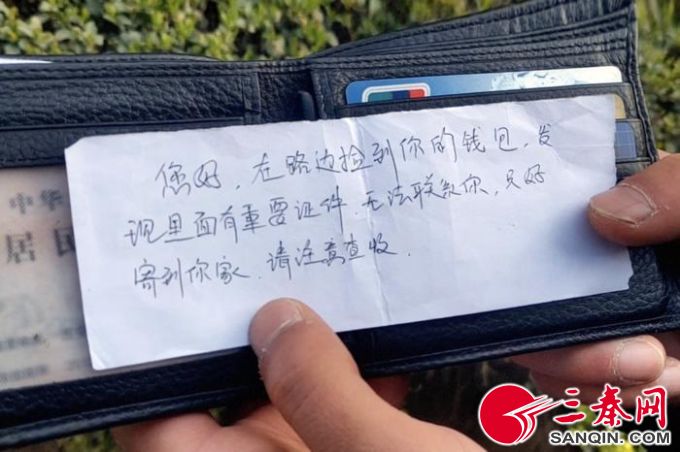 您好,在路边捡到你的钱包,发
现里面有重要证件.无法联系你,只好
寄到你家.请注意查收.
中华
居民
三秦网
SANQIN.COM